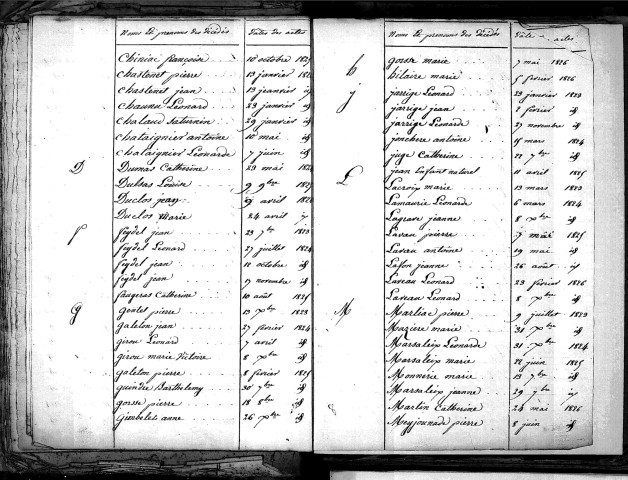 Noms et prénoms des décédés Dates des actes
Chiniac françoise 10 octobre 1825
Chastenet pierre 13 janvier 1826
Chastenet jean 13 janvier id
Chaunu Léonard 23 janvier id
Chalaud Saturnin 29 janvier id
Chataignier antoine 10 mai id
Chataignier Léonarde 7 juin id
D Dumas Catherine 23 mai 1824
Dubras Louise 9 9bre 1825
Duclos jean 29 avril 1826
Duclos Marie 24 avril
F feydel jean 23 7bre 1823
feydel Léonard 27 juillet 1824
feydel jean 11 octobre id
feydel jean 19 novembre id
faugeras Catherine 10 août 1825
G gentet pierre 13 Xbre 1823
galeton jean 27 février 1824
giron Léonard 7 avril id
giron marie Victoire 8 Xbre id
galeton pierre 8 février 1825
guindre Barthelemy 30 7bre id
gorse pierre 18 8bre id
Gimbelet anne 26 Xbre id
Noms et prénoms des décédés Date actes
gorse marie 7 mai 1826
h hilaire marie 5 février 1826
J jarrige Léonard 23 janvier 1823
jarrige jean 2 février id
jarrige Léonarde 27 novembre id
jonchere antoine 15 mars 1824
juge Catherine 22 7bre id
jean Enfant naturel 11 avril 1825
L Lacroix marie 13 mars 1823
Lamaurie Léonarde 6 mars 1824
Lagrave jeanne 8 Xbre id
Lavau pierre 9 mai 1825
Lavau antoine 19 mai id
Lafon jeanne 26 août id
Laveau Léonard 23 février 1826
Laveau Léonard 8 Xbre id
M Martiac pierre 9 juillet 1823
Maziere marie 31 Xbre id
Marsaleix Léonarde 31 Xbre 1824
Marsaleix marie 22 juin 1825
Monnerie marie 13 7bre id
Marsaleix jeanne 29 7bre id
Martin Catherine 24 mai 1826
Meyjounade pierre 8 juin id